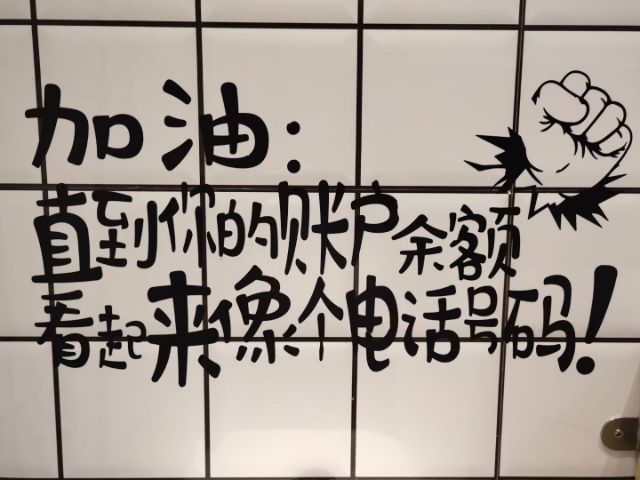 加油:
直到你的账户余额
看起来像个电话号码!